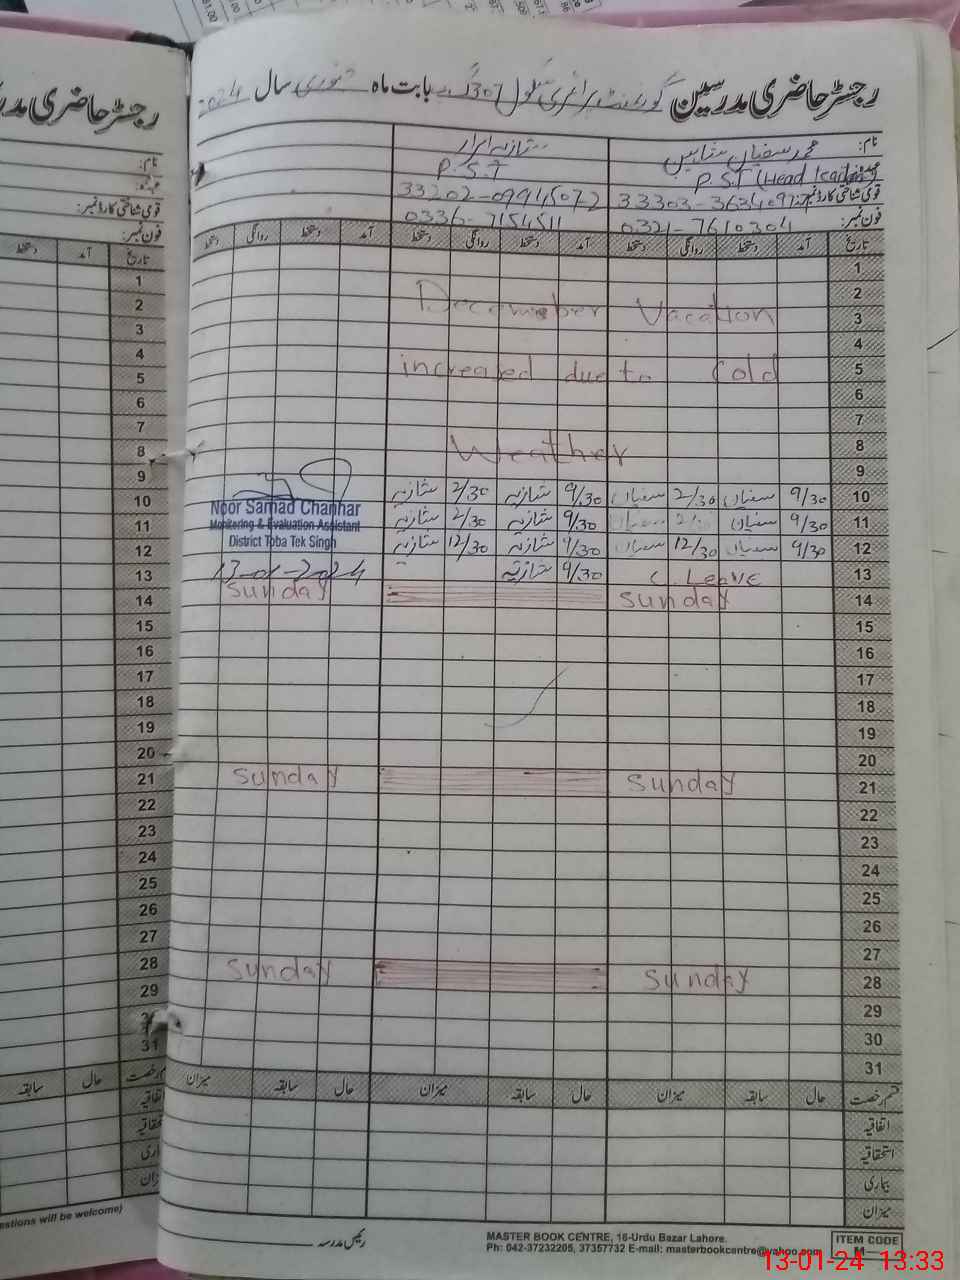 رجسٹر حاضری مدرسین گورنمنٹ پرائمری سکول 307 گ ب بابت ماہ جنوری سال 2024
نام: محمد سفیان شاہین شازیہ ابرار
عہدہ: P.S.T (Head teacher) P.S.T
قومی شناختی کارڈ نمبر: 33202-0994507-2
فون نمبر: 0321-7610304 0336-7154511
تاریخ آمد دستخط روانگی دستخط آمد دستخط روانگی دستخط آمد دستخط روانگی دستخط
1
2
December Vacation
3
4
increased due to Cold
5
6
7
Weather
8
9
10 9/30 سفیان 2/30 سفیان 9/30 شازیہ 2/30 شازیہ
Noor Samad Chanhar
11 9/30 سفیان سفیان 9/30 شازیہ 2/30 شازیہ
Monitoring & Evaluation Assistant
12 9/30 سفیان 12/30 سفیان 9/30 شازیہ 12/30 شازیہ
District Toba Tek Singh
13 C. Leave 9/30 شازیہ
13-01-2024
14 Sunday Sunday
15
16
17
18
19
20
21 Sunday Sunday
22
23
24
25
26
27
28 Sunday Sunday
29
30
31
قسم رخصت حال سابقہ میزان حال سابقہ میزان حال سابقہ میزان
اتفاقیہ
استحقاقیہ
بیماری
میزان
رئیس مدرسہ
MASTER BOOK CENTRE, 16-Urdu Bazar Lahore.
Ph: 042-37232205, 37357732 E-mail: masterbookcentre@yahoo.com
ITEM CODE
M—
رجسٹر حاضری مدر
نام:
عہدہ:
قومی شناختی کارڈ نمبر:
فون نمبر:
تاریخ آمد دستخط
1
2
3
4
5
6
7
8
9
10
11
12
13
14
15
16
17
18
19
20
21
22
23
24
25
26
27
28
29
31
حال سابقہ
estions will be welcome)
13-01-24 13:33